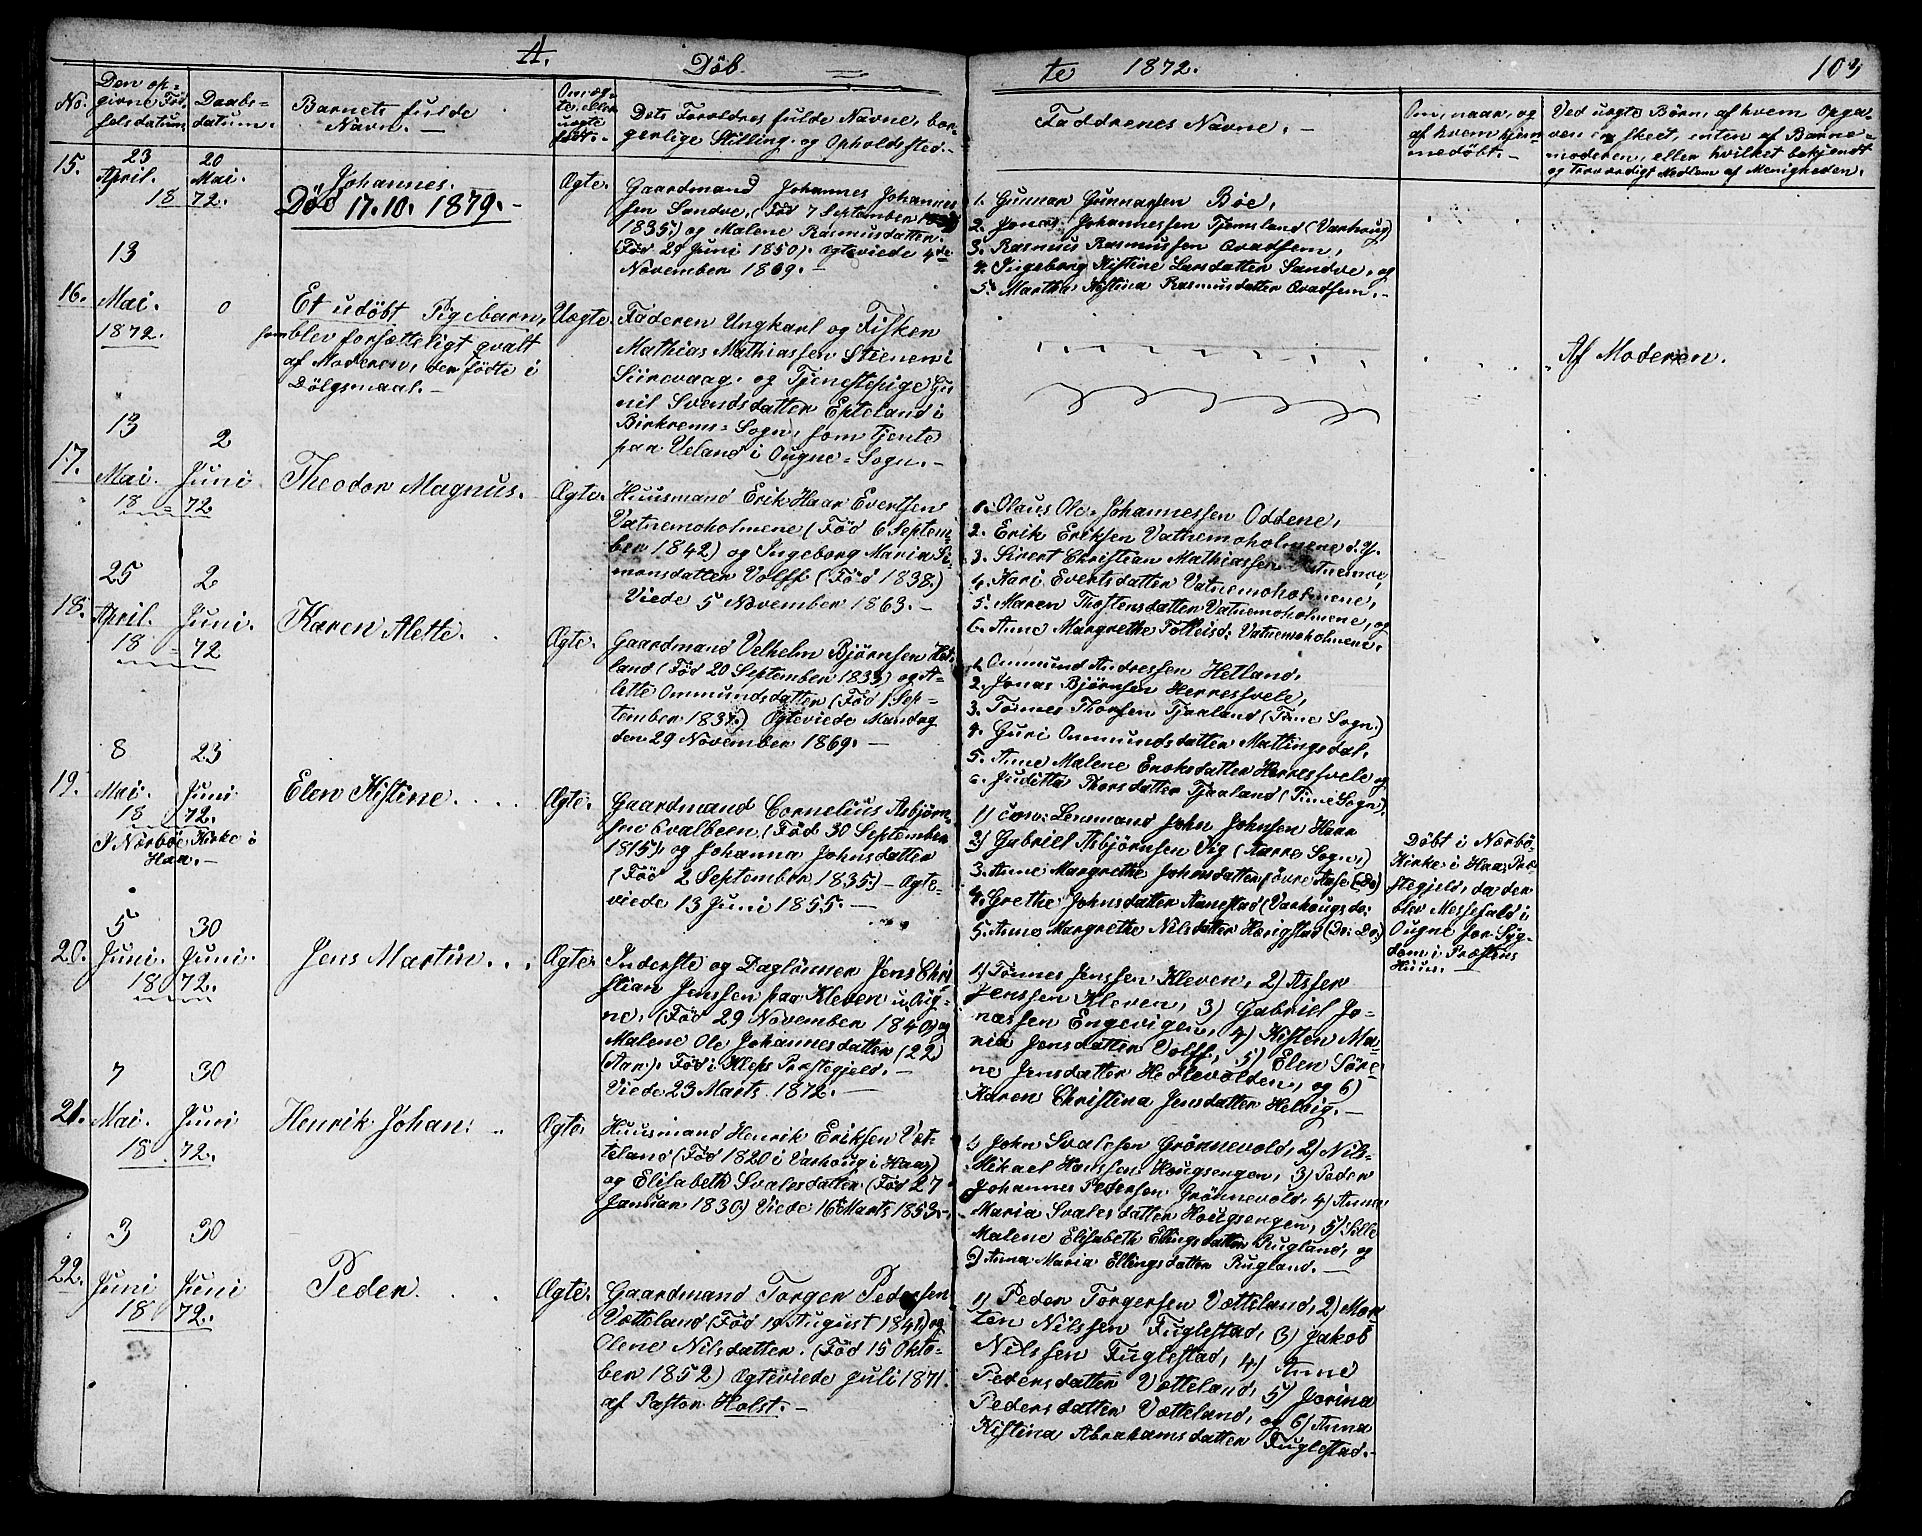 A.
Döb te 1872.
103
No.
Den op-
givne Föd-
selsdatum
Daabs-
datum.
Barnets fulde
Navn. —
Om æg-
te, eller
uægte
födt. -
Dets Foreldres fulde Navne, bor-
gerlige Stilling, og Opholdssted. -
Faddrenes Navne. —
Om, naar, og
af hvem hjem-
medöbt. -
Ved uægte Börn, af hvem Opga-
ven er skeet, enten af Barne-
moderen, eller hvilket bekjendt
og troværdigt Medlem af Menigheden.
15.
23
April.
18
20
Mai.
72.
Johannes.
Död 17.10. 1879. -
Ægte.
Gaardmand Johannes Johannes-
sen Sandve, (Föd 7 September
1835) og Malene Rasmusdatter.
(Föd 29 Juni 1850). Ægteviede 4de
November 1869. -
1. Gunnar Gunnarsen Böe,
2. Jonas Johannessen Tjemsland (Varhoug)
3. Rasmus Rasmussen Qvadsem,
4. Ingeborg Kistine Larsdatter Sandve, og
5. Martha Kistina Rasmusdatter Qvadsem. -
16.
13
Mai.
1872.
0
Et udöbt Pigebarn,
som blev forsætteligt qvalt
af Moderen, der födte i
Dölgsmaal. -
Uægte.
Faderen Ungkarl og Fisker
Mathias Mathiassen Stienen i
Siirevaag, og Tjenestepige Gu-
nil Svendsdatter Epteland i
Birkrems-Sogn, som tjente
paa Ueland i Ougne-Sogn. -
Af Moderen.
17.
13
Mai.
18
2
Juni.
72
Theodor Magnus.
Ægte.
Huusmand Erik Haar Evertsen
Vatnemoholmene (Föd 6 Septem-
ber 1842) og Ingeborg Maria Si-
monsdatter Volff (Föd 1838.)
Viede 5 November 1863. -
1. Olaus Ole Johannessen Oddene,
2. Erik Eriksen Vatnemoholmene d. y.
3. Sivert Christian Mathiassen Vatnemoe,
4. Kari Evertsdatter Vatnemoholmene,
5. Maren Thostensdatter Vatnemoholmene, og
6. Anne Margrethe Tolleisd: Vatnemoholmene.
18.
25
April.
18
2
Juni.
72
Karen Alette.
Ægte.
Gaardmand Velhelm Björnsen Het-
land (Föd 20 September 1833) og A-
lette Ommundsdatter (Föd 1 Sep-
tember 1837.) Ægteviede Mandag
den 29 November 1869. -
1. Ommund Andressen Hetland,
2. Jonas Björnsen Herresvele,
3. Tönnes Thorsen Tjaaland (Time Sogn.)
4. Guri Ommundsdatter Mattingsdal,
5. Anne Malene Enoksdatter Herresvele og
6. Juditta Thorsdatter Tjaaland (Time Sogn).
19.
8
Mai.
18
23
Juni
72.
I Nærböe Kirke i
Haa. -
Elen Kistine.
Ægte.
Gaardmand Cornelius Asbjörn-
sen Evalbern, (Föd 30 September
1815) og Johanna Johnsdatter
(Föd 2 September 1835.) - Ægte-
viede 13 Juni 1855. -
1) con: Lensmand John Johnsen Haar
2) Gabriel Asbjörnsen Vig (Aarre Sogn,)
3. Anne Margrethe Johnsdatter övre Hase (Do)
4. Grethe Johnsdatter Aanestad (Varhougs do:
5. Anne Margrethe Nilsdatter Haugstad (Do: Do)
Döbt i Nærbö-
Kirke i Haa Præ-
stegjeld, da der
blev Messefald i
Ougne for Syg-
dom i Præstens
Huus. -
20.
5
Juni.
18
30
Juni.
72.
Jens Martin.
Ægte.
Inderste og Daglönner Jens Chri-
stian Jenssen paa Kleven i Oug-
ne. (Föd 29 November 1840) og
Malene Ole Johannesdatter (22
Aar). Föd i Kleps Præstegjeld. -
Viede 23 Marts 1872. -
1) Tönnes Jenssen Kleven, 2) Asser
Jenssen Kleven, 3) Gabriel Jo-
nassen Engevigen, 4) Kisten Ma-
ria Jensdatter Volff, 5) Elen Söre-
ne Jensdatter Hedlevolden, og 6)
Karen Christina Jensdatter Helvig. -
21.
7
Mai.
18
30
Juni
72.
Henrik Johan.
Ægte
Huusmand Henrik Eriksen Væt-
teland (Föd 1820 i Varhoug i Haa)
og Elisabeth Svalesdatter (Föd 27
Januar 1830) Viede 16 Marts 1853. -
1) John Svalesen Grönnevold, 2) Nils
Mikael Hanssen Hougsengen, 3) Peder
Johannes Pedersen Grönnevold, 4) Anna
Maria Svalesdatter Hougsengen, 5) Sille
Malene Elisabeth Ellingsdatter Rugland, og
6) Anna Maria Ellingsdatter Rugland. -
22.
3
Juni
18
30
Juni
72.
Peder.
Ægte.
Gaardmand Torger Pedersen
Vætteland (Föd 19 August 1841) og
Olene Nilsdatter. (Föd 15 Okto-
ber 1852) Ægteviede Juli 1871.
af Pastor Holst. -
1) Peder Torgersen Vætteland, 2) Mor-
ten Nilssen Fuglestad, 3) Jakob
Nilssen Fuglestad, 4) Anne
Pedersdatter Vætteland, 5) Jorina
Pedersdatter Vætteland, og 6) Anna
Kistina Abrahamsdatter Fuglestad. -